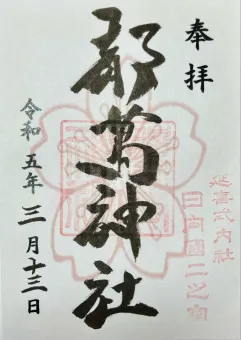 奉拝
延喜式内社
日向國二之宮
都萬神社
令和五年三月十三日